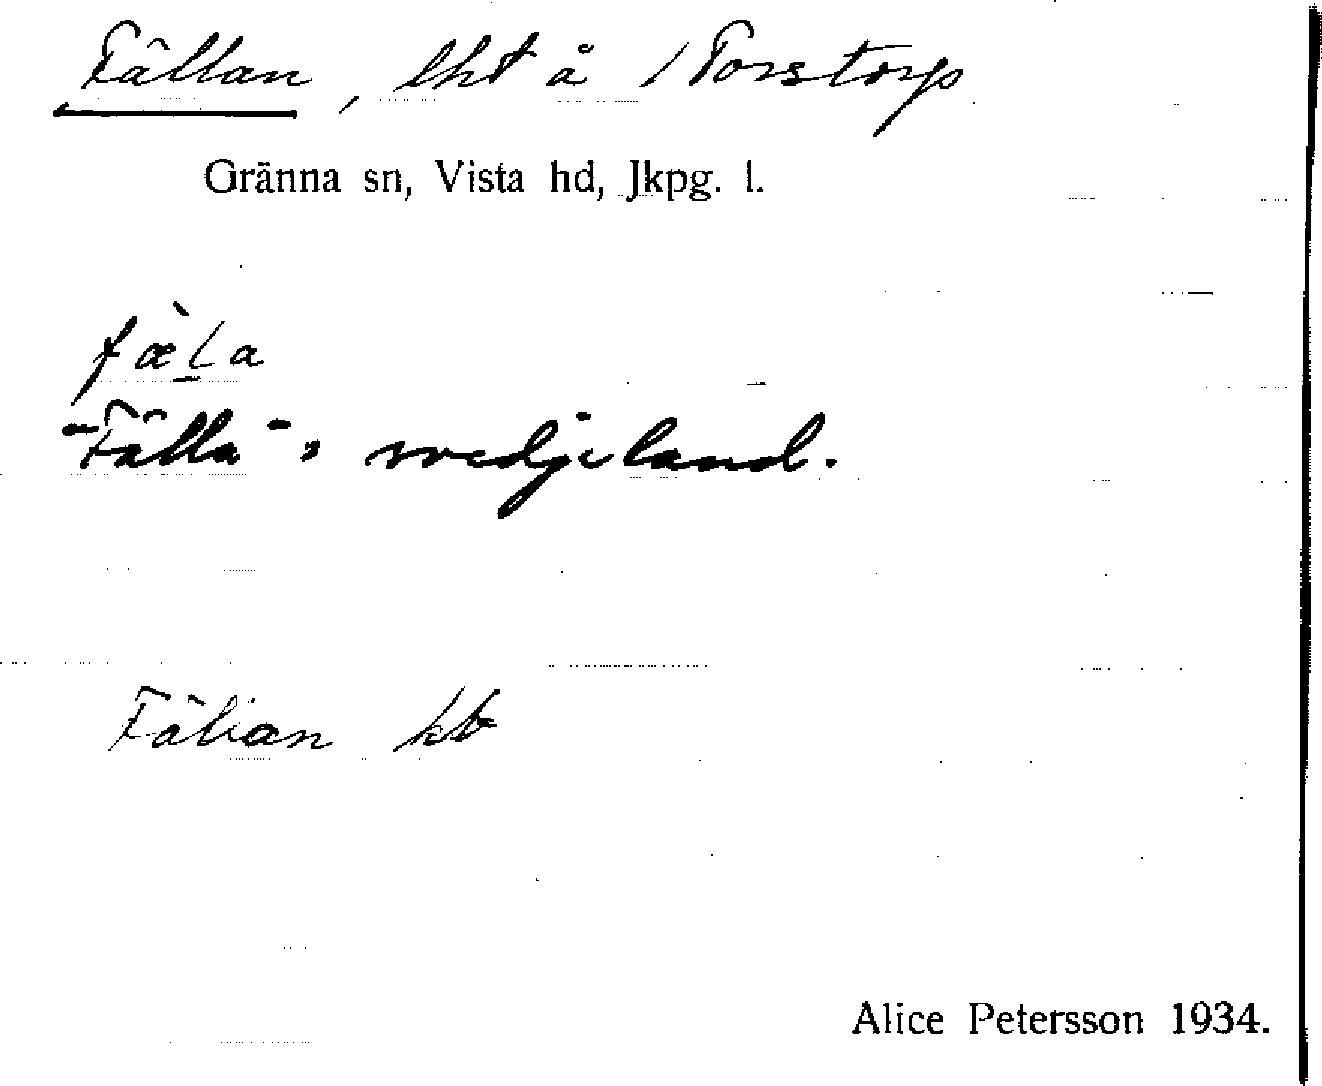 Fällan, lht å Torstorp
Gränna sn, Vista hd, Jkpg. l.
fæ̀l̲a
"Fälla" = svedjeland.
Fällan kb
Alice Petersson 1934.